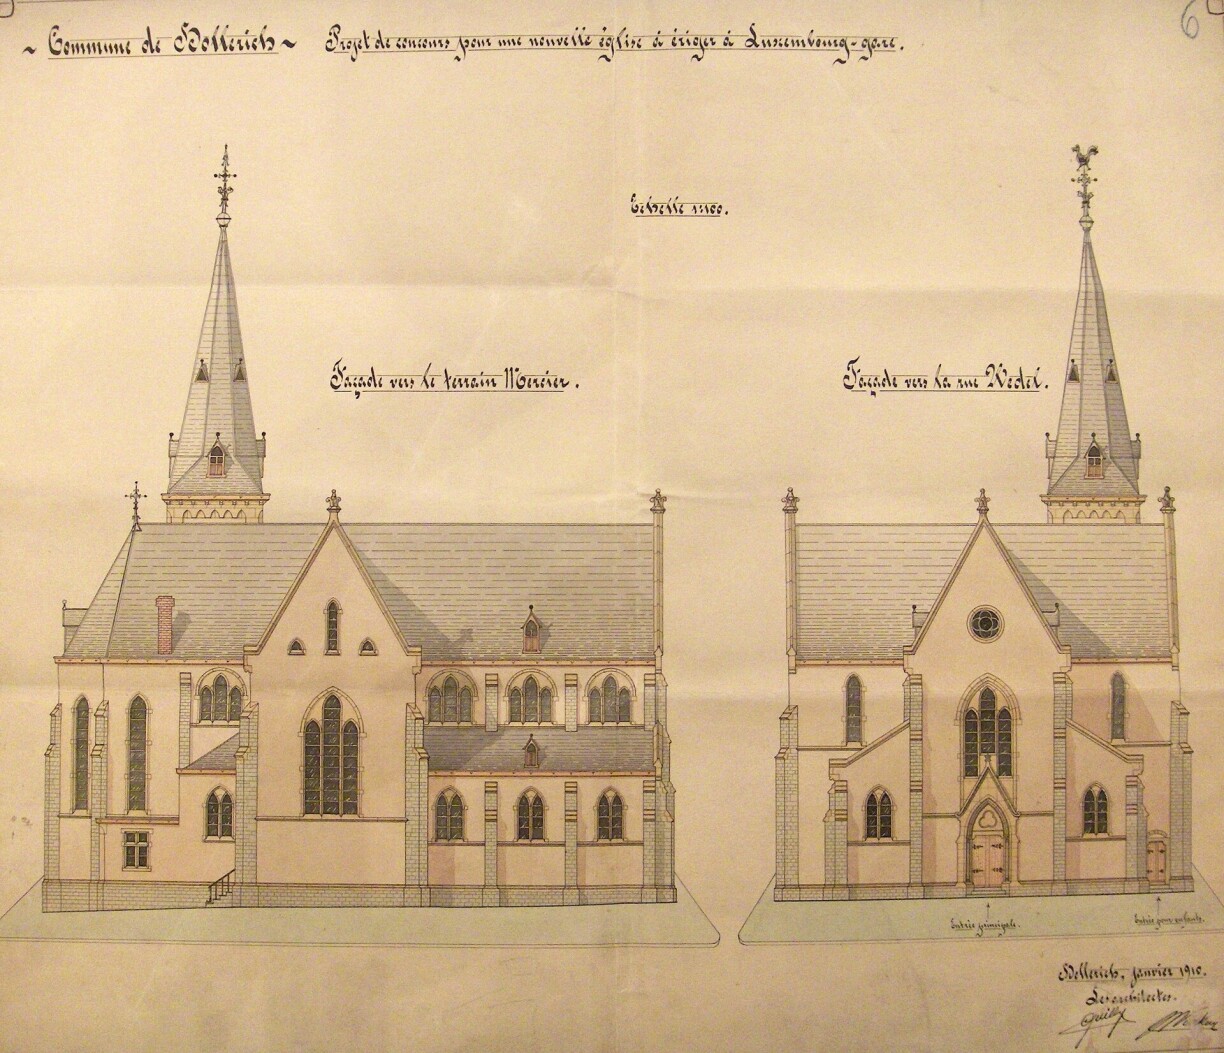 6
~ Commune de Hollerich ~ Projet de concours pour une nouvelle église à ériger à Luxembourg-gare.
Echelle 1:100.
Façade vers le terrain Mercier.
Façade vers la rue Wedel.
Entrée principale.
Entrée pour enfants.
Hollerich, janvier 1910.
Les architectes.